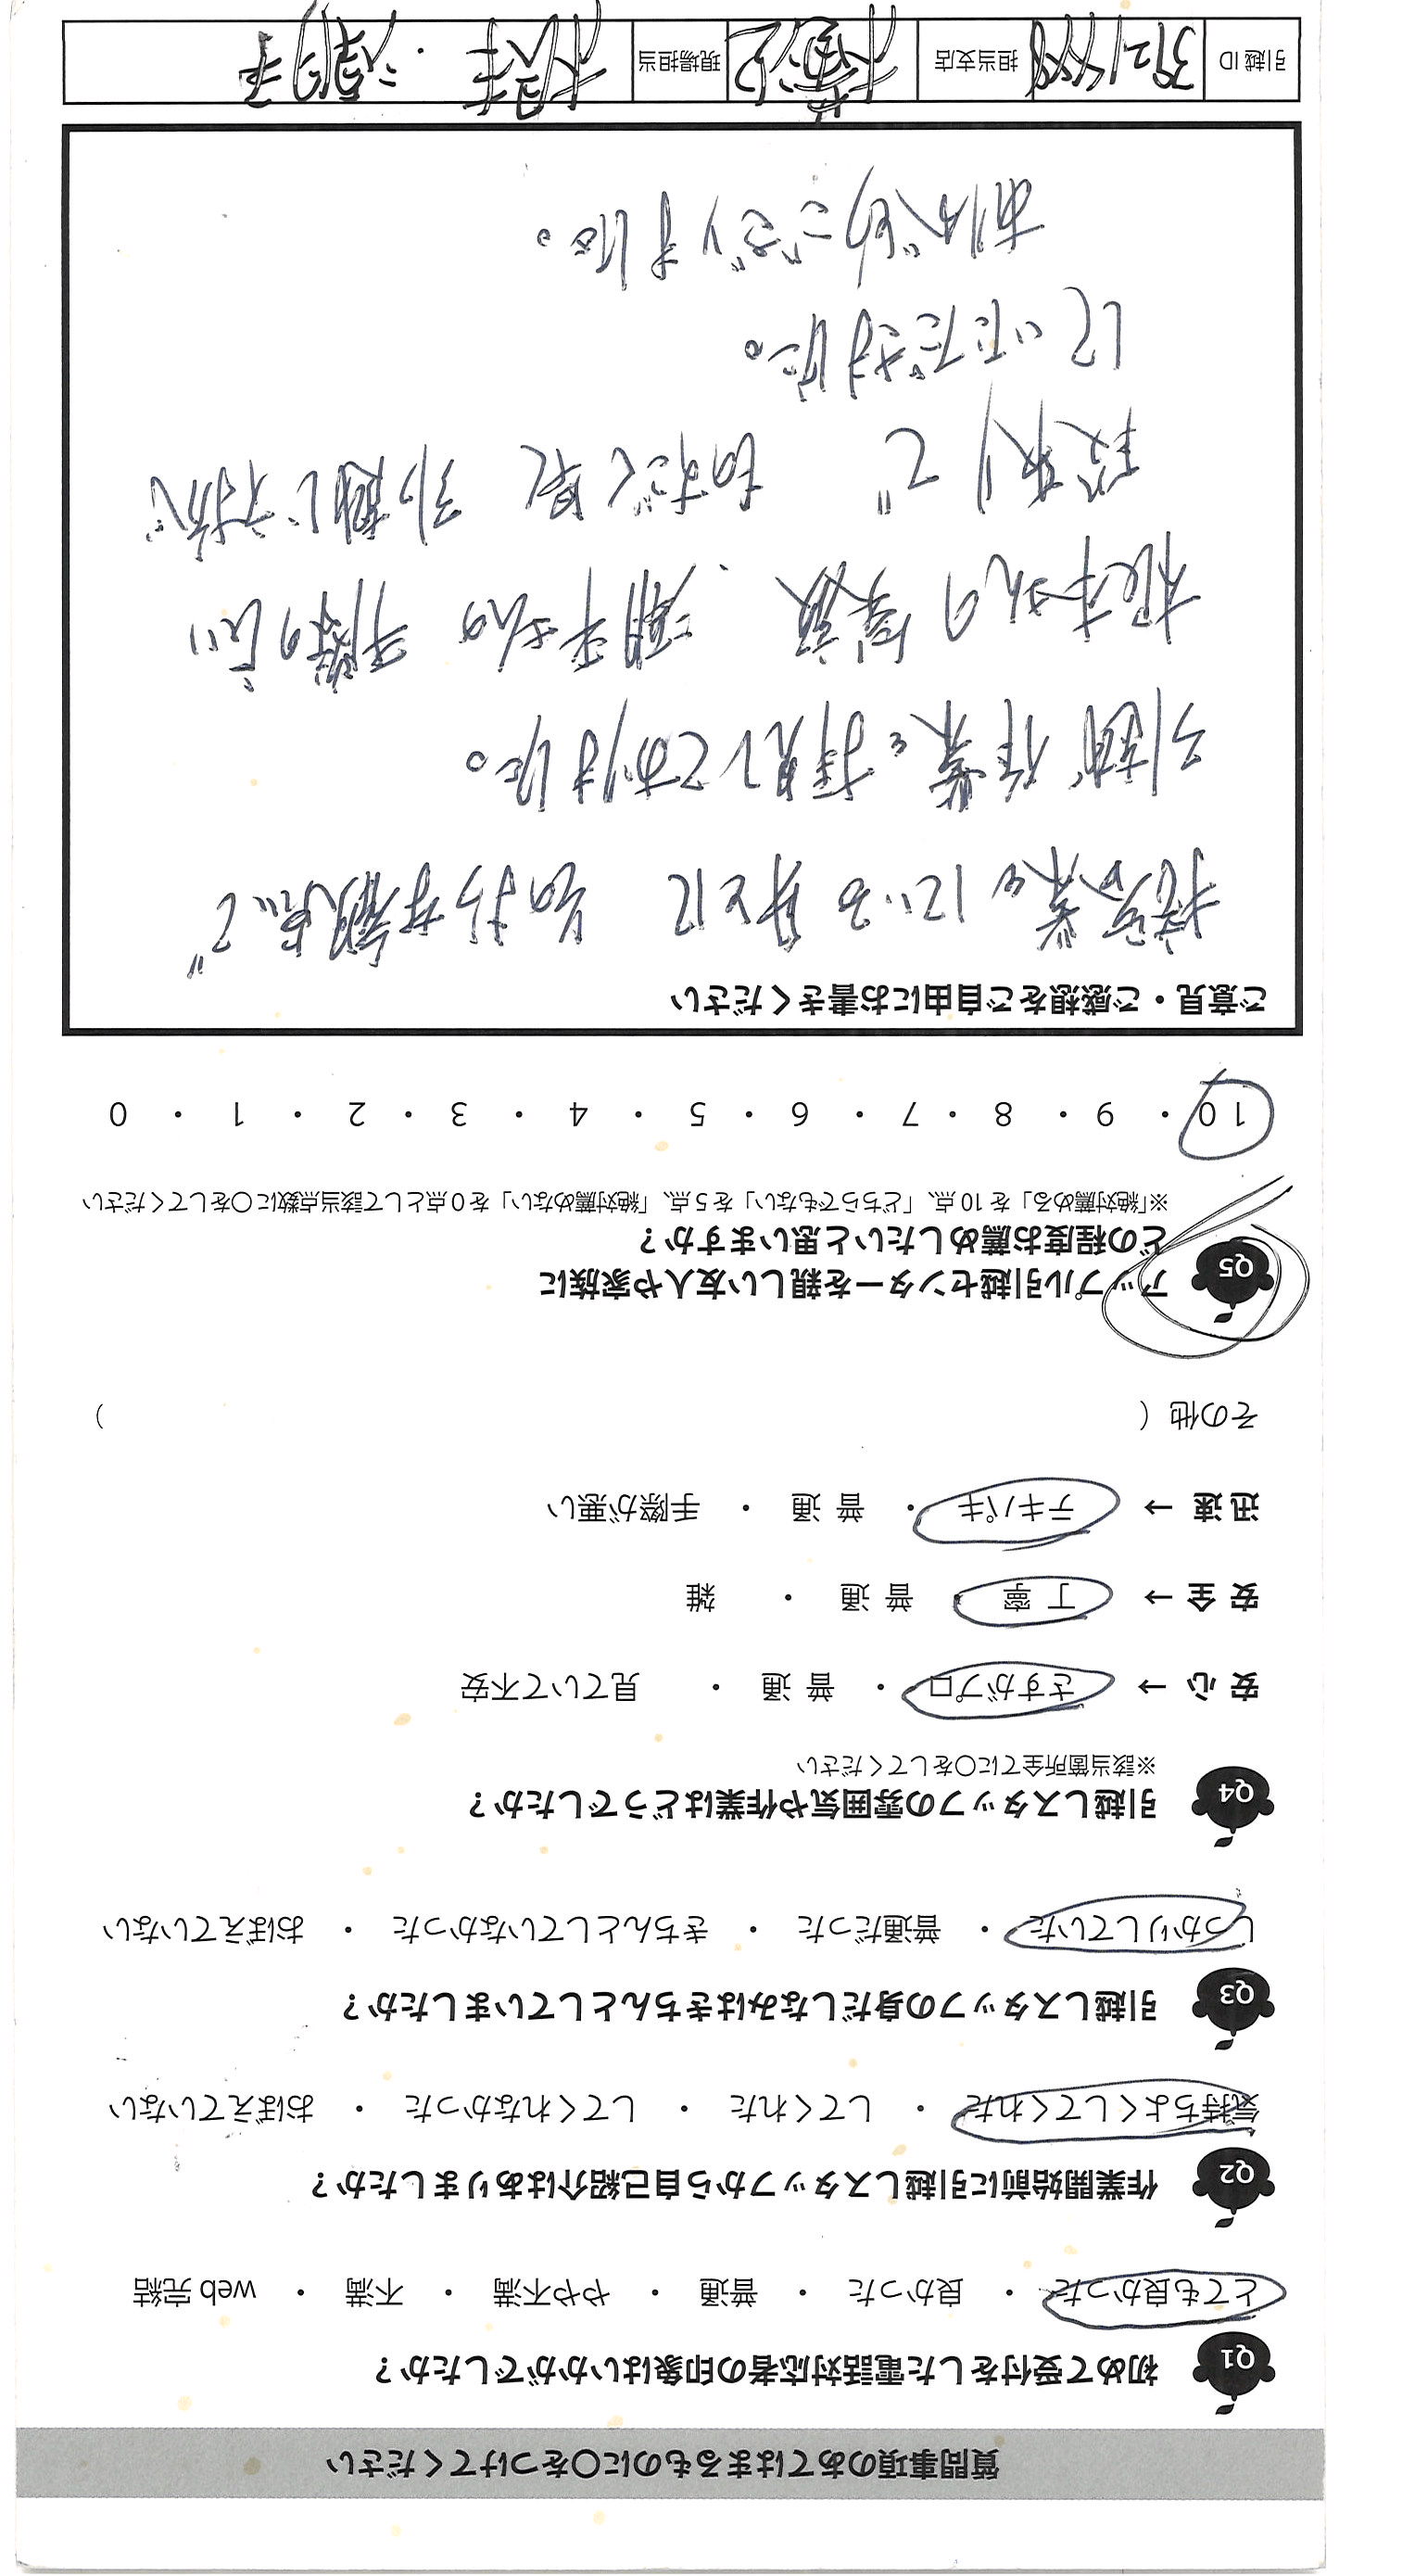 質問事項のあてはまるものに〇をつけてください
Q1 初めて受付をした電話対応者の印象はいかがでしたか?
とても良かった ・ 良かった ・ 普通 ・ やや不満 ・ 不満 ・ web 完結
Q2 作業開始前に引越しスタッフから自己紹介はありましたか?
気持ちよくしてくれた ・ してくれた ・ してくれなかった ・ おぼえていない
Q3 引越しスタッフの身だしなみはきちんとしていましたか?
しっかりしていた ・ 普通だった ・ きちんとしていなかった ・ おぼえていない
Q4 引越しスタッフの雰囲気や作業はどうでしたか?
※該当箇所全てに〇をしてください
安 心 → さすがプロ ・ 普 通 ・ 見ていて不安
安 全 → 丁 寧 ・ 普 通 ・ 雑
迅 速 → テキパキ ・ 普 通 ・ 手際が悪い
その他 ( )
Q5 アップル引越センターを親しい友人や家族に
どの程度お薦めしたいと思いますか?
※「絶対薦める」を 10 点、「どちらでもない」を 5 点、「絶対薦めない」を 0 点として該当点数に〇をしてください
10 ・ 9 ・ 8 ・ 7 ・ 6 ・ 5 ・ 4 ・ 3 ・ 2 ・ 1 ・ 0
ご意見・ご感想をご自由にお書きください
接客業をしている身として 色々な観点で
引越作業を拝見しておりました。
根本さんの笑顔、潮平さんの 手際の良い
段取りで 気持よく 引越しを
していただきました。
ありがとうございました。
引越 ID 担当支店 現場担当 根本 ・ 潮平